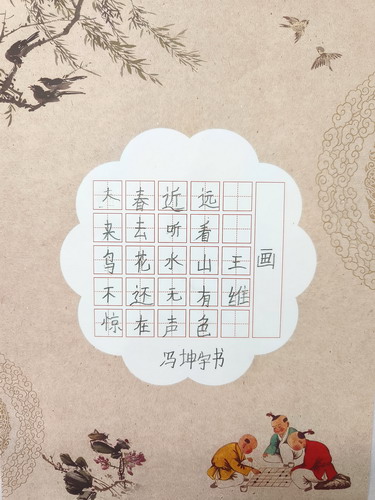 画
王维
远看山有色
近听水无声
春去花还在
人来鸟不惊
冯坤宇书